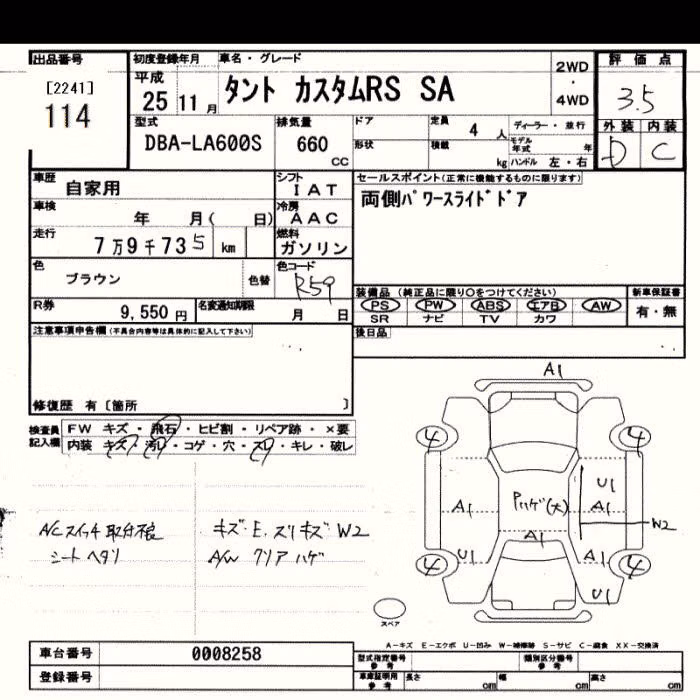 出品番号 初度登録年月 車名・グレード 2WD・4WD 評価点
[2241] 114 平成 25 11月 タント カスタムRS SA 3.5
型式 排気量 ドア 定員 4人 ディーラー・並行 外装 内装
DBA-LA600S 660 CC 形状 積載 kg モデル年式 年 ハンドル 左・右 D C
車歴 自家用 シフト IAT セールスポイント(正常に機能するものに限ります)
車検 年 月( 日) 冷房 AAC 両側パワースライドドア
走行 7万9千735 km 燃料 ガソリン
色 ブラウン 色替 色コード R59
装備品(純正品に限り○をつけてください) 新車保証書
R券 9,550円 名変通知期限 月 日 PS PW ABS エアB AW 有・無
SR ナビ TV カワ
注意事項申告欄(不具合内容等は具体的に記入して下さい) 後日品
修復歴 有〔箇所 〕
検査員記入欄 FW キズ・飛石・ヒビ割・リペア跡・×要
内装 キズ・汚レ・コゲ・穴・スレ・キレ・破レ
A/Cスイッチ取付不良 キズ・E.ズリキズ W2
シートヘタリ A/W クリアハゲ
A1
4 4
U1
A1 Pハゲ(大) A1
W2
A1
U1 A1
4 4
U1
スペア
A-キズ E-エクボ U-凹み W-補修跡 S-サビ C-腐食 XX-交換済
車台番号 0008258 型式指定番号 参考 類別区分番号 参考
登録番号 車庫証明用 参考 長さ cm 幅 cm 高さ cm